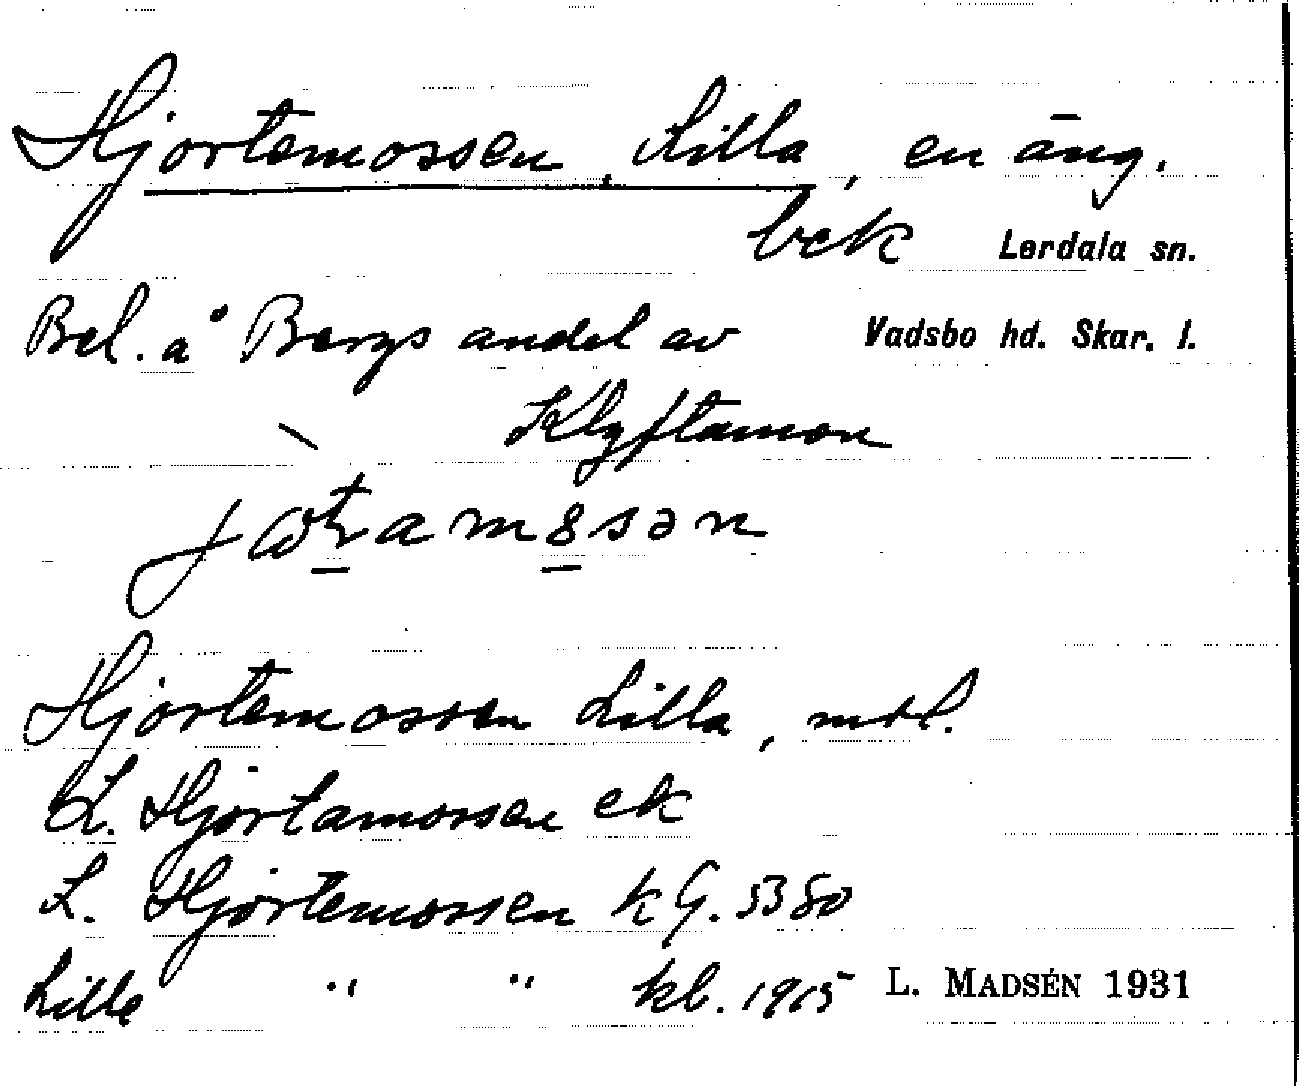 Hjortemossen, Lilla, en äng.
bek Lerdala sn.
Bel. å Bergs andel av Vadsbo hd. Skar. l.
Klyftamon
Hjortemossen Lilla, mtl.
L. Hjortamossen ek
L. Hjortemossen k G. 53 80
Lilla " " kb. 1915 L. MADSÉN 1931